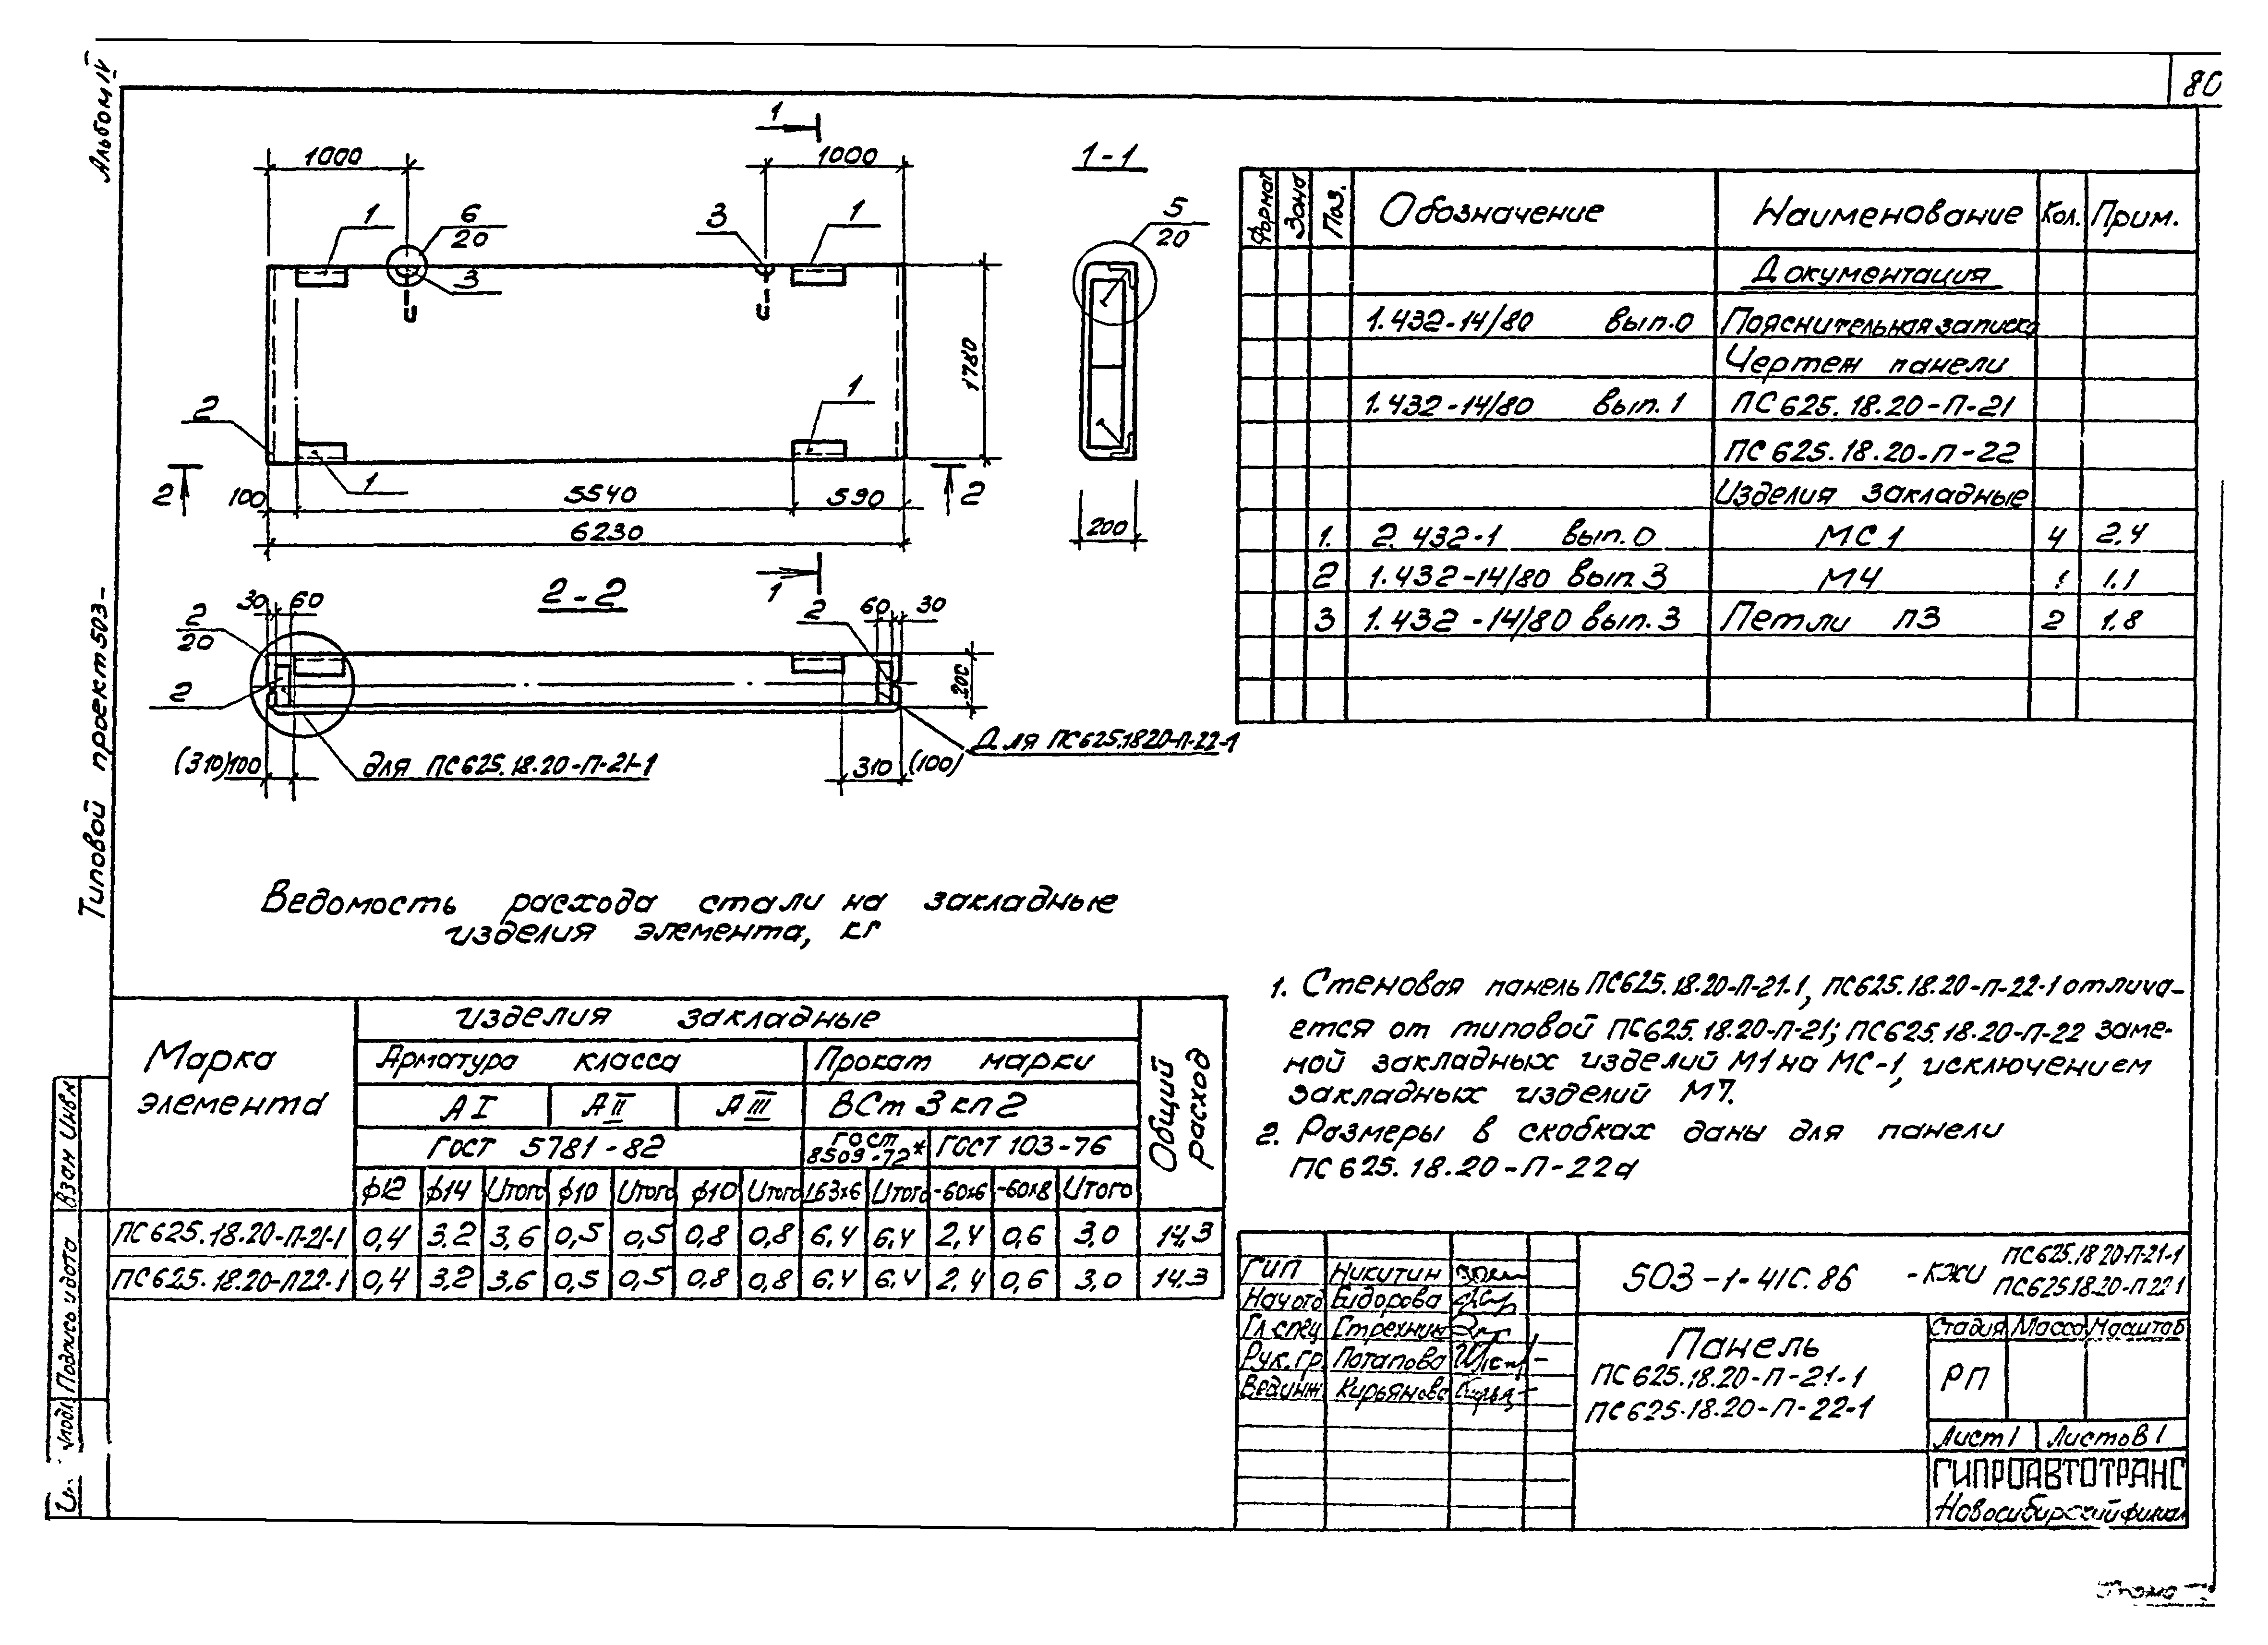 80
Альбом IV
Типовой проект 503-
1
1000
1000
1-1
1
6
20
3
1
5
20
3
1780
2
1
1
2
100
5540
590
2
200
6230
1
2-2
30
60
2
60
30
2
20
2
200
Для ПС625.18.20-П-22-1
(310)
100
для ПС625.18.20-П-21-1
310
(100)
Формат
Зона
Поз.
Обозначение
Наименование
Кол.
Прим.
Документация
1.432-14/80 вып.0 Пояснительная записка
Чертеж панели
1.432-14/80 вып.1 ПС625.18.20-П-21
ПС625.18.20-П-22
Изделия закладные
1. 2.432-1 вып.0 МС1 4 2.4
2 1.432-14/80 вып.3 М4 1 1.1
3 1.432-14/80 вып.3 Петли П3 2 1.8
Ведомость расхода стали на закладные
изделия элемента, кг
Марка
элемента
изделия закладные
Общий
расход
Арматура класса
Прокат марки
АI
АII
АIII
ВСт3кп2
ГОСТ 5781-82
ГОСТ
8509-72*
ГОСТ 103-76
ф12 ф14 Итого ф10 Итого ф10 Итого L63х6 Итого -60х6 -60х8 Итого
ПС625.18.20-П-21-1 0,4 3.2 3,6 0,5 0,5 0,8 0,8 6,4 6,4 2,4 0,6 3,0 14,3
ПС625.18.20-П22-1 0,4 3.2 3,6 0,5 0,5 0,8 0,8 6,4 6,4 2,4 0,6 3,0 14.3
1. Стеновая панель ПС625.18.20-П-21-1, ПС625.18.20-П-22-1 отлича-
ется от типовой ПС625.18.20-П-21; ПС625.18.20-П-22 заме-
ной закладных изделий М1 на МС-1, исключением
закладных изделий М7.
2. Размеры в скобках даны для панели
ПС625.18.20-П-22а
ГИП Никитин
Нач отд Бидорова
Гл.спец Стрехнин
Рук.гр. Потапова
Вединж Кирьянова
503-1-41С.86 -КЖИ
ПС625.18.20-П-21-1
ПС625.18.20-П 22-1
Панель
ПС625.18.20-П-21-1
ПС625.18.20-П-22-1
Стадия Масса Масштаб
РП
Лист 1 Листов 1
ГИПРОАВТОТРАНС
Новосибирский филиал
Взам Инв№
Подпись и дата